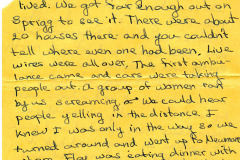 lived. We got far enough out on
Sprigg to see it. There were about
20 houses there and you couldn't
tell where even one had been. Live
wires were all over. The first ambu-
lance came and cars were taking
people out. A group of women ran
by us screaming, & we could hear
people yelling in the distance. I
knew I was only in the way so we
turned around and went up to
them. Flop was eating dinner with